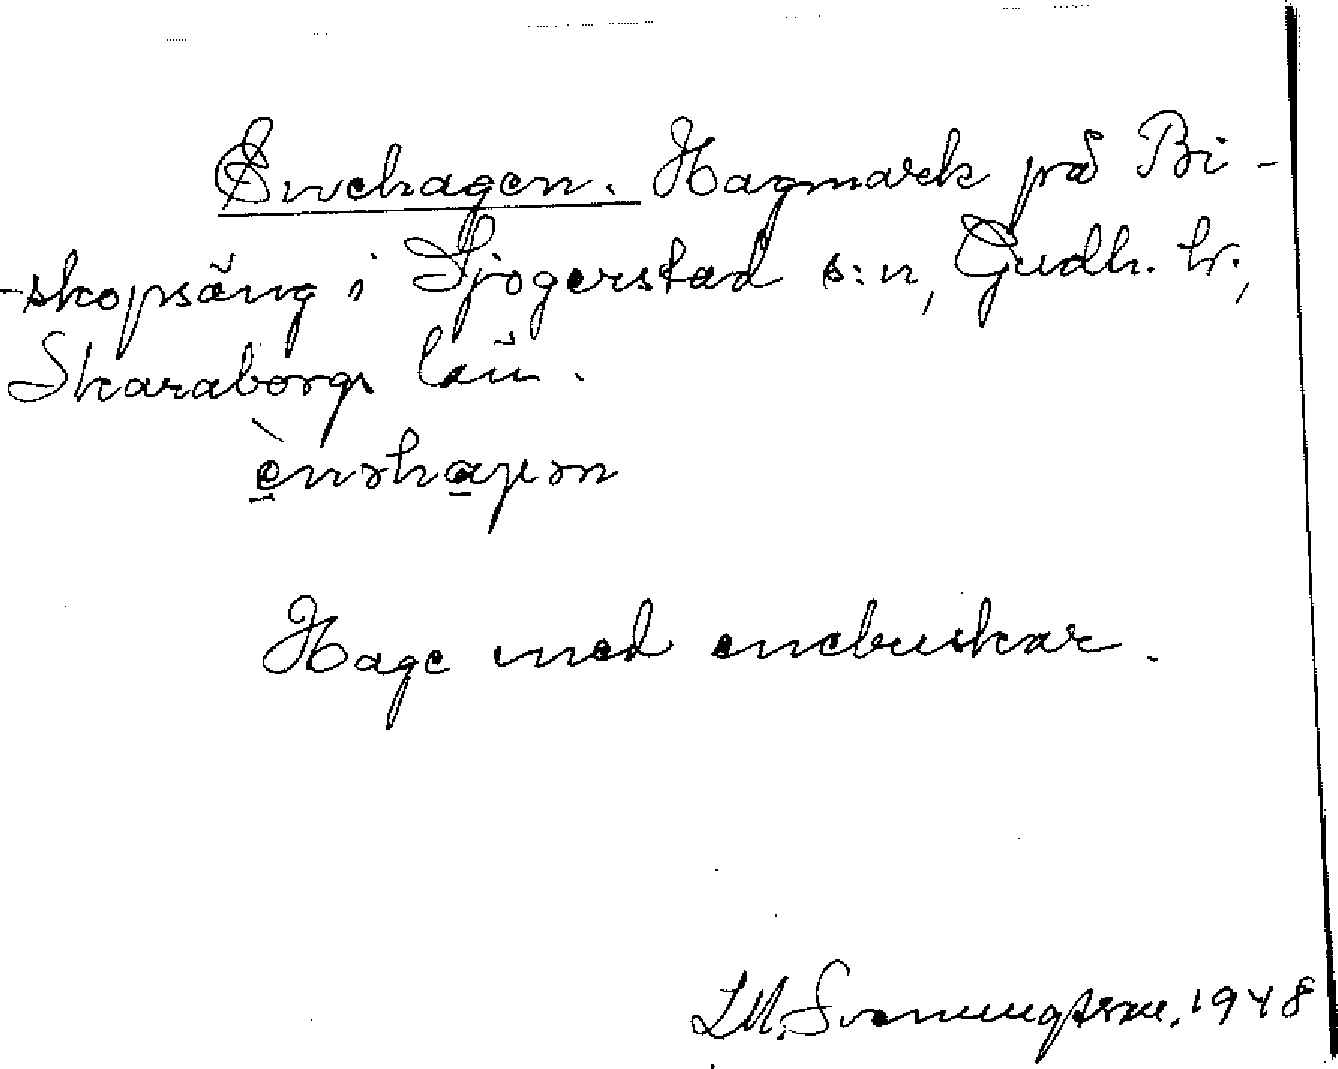 Enehagen. Hagmark på Bi-
-skopsäng i Sjogerstad s:n, Gudh. hr,
Skaraborgs län.
Hage med enebuskar.
Svenningsson, 1948